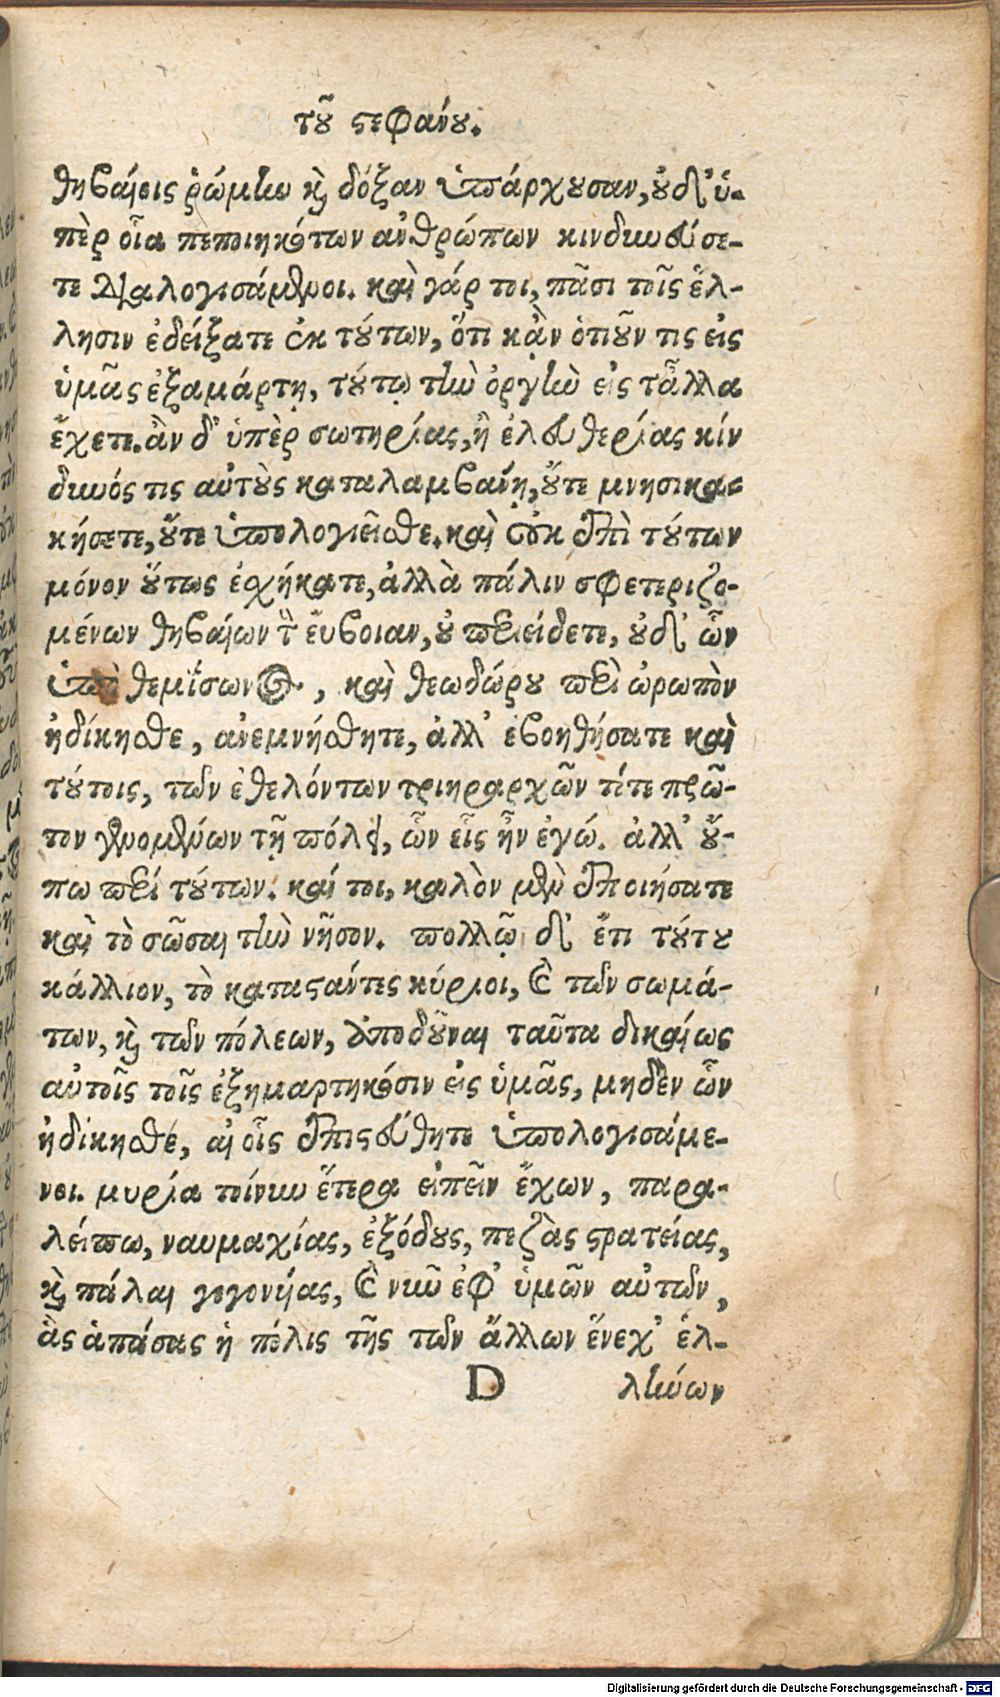 τοῦ στεφάνου.
θηβαίοις ῥώμην καὶ δόξαν ὑπάρχουσαν, οὐδ' ὑ-
πὲρ οἷα πεποιηκότων ἀνθρώπων κινδυνεύσε-
τε διαλογισάμενοι. καὶ γάρ τοι, πᾶσι τοῖς ἕλ-
λησιν ἐδείξατε ἐκ τούτων, ὅτι κἂν ὁτιοῦν τις εἰς
ὑμᾶς ἐξαμάρτῃ, τούτῳ τὴν ὀργὴν εἰς τἆλλα
ἔχετε. ἂν δ' ὑπὲρ σωτηρίας, ἢ ἐλευθερίας κίν
δυνός τις αὐτοὺς καταλαμβαίνῃ, οὔτε μνησικα-
κήσετε, οὔτε ὑπολογιεῖσθε. καὶ οὐκ ἐπὶ τούτων
μόνον οὕτως ἐσχήκατε, ἀλλὰ πάλιν σφετεριζο-
μένων θηβαίων τὴν ἔυβοιαν, οὐ περιείδετε, οὐδ' ὧν
ὑπὸ θεμίσωνος, καὶ θεωδώρου περὶ ὠρωπὸν
ἠδίκησθε, ἀνεμνήσθητε, ἀλλ' ἐβοηθήσατε καὶ
τούτοις, τῶν ἐθελόντων τριηραρχῶν τότε πρῶ-
τον γενομένων τῇ πόλει, ὧν εἷς ἦν ἐγώ. ἀλλ' οὔ-
πω περὶ τούτων. καί τοι, καλὸν μὲν ἐποιήσατε
καὶ τὸ σῶσαι τὴν νῆσον. πολλῷ δ' ἔτι τούτου
κάλλιον, τὸ καταστάντες κύριοι, καὶ τῶν σωμά-
των, καὶ τῶν πόλεων, ἀποδοῦναι ταῦτα δικαίως
αὐτοῖς τοῖς ἐξημαρτηκόσιν εἰς ὑμᾶς, μηδὲν ὧν
ἠδίκησθέ, αι οἷς ἐπιστεύθητε ὑπολογισάμε-
νοι. μυρία τοίνυν ἕτερα εἰπεῖν ἔχων, παρα-
λείπω, ναυμαχίας, ἐξόδους, πεζὰς στρατείας,
καὶ πάλαι γεγονυίας, καὶ νῦν ἐφ' ὑμῶν αὐτῶν,
ἃς ἁπάσας ἡ πόλις τῆς τῶν ἄλλων ἕνεχ' ἑλ-
D λήνων
Digitalisierung gefördert durch die Deutsche Forschungsgemeinschaft - DFG